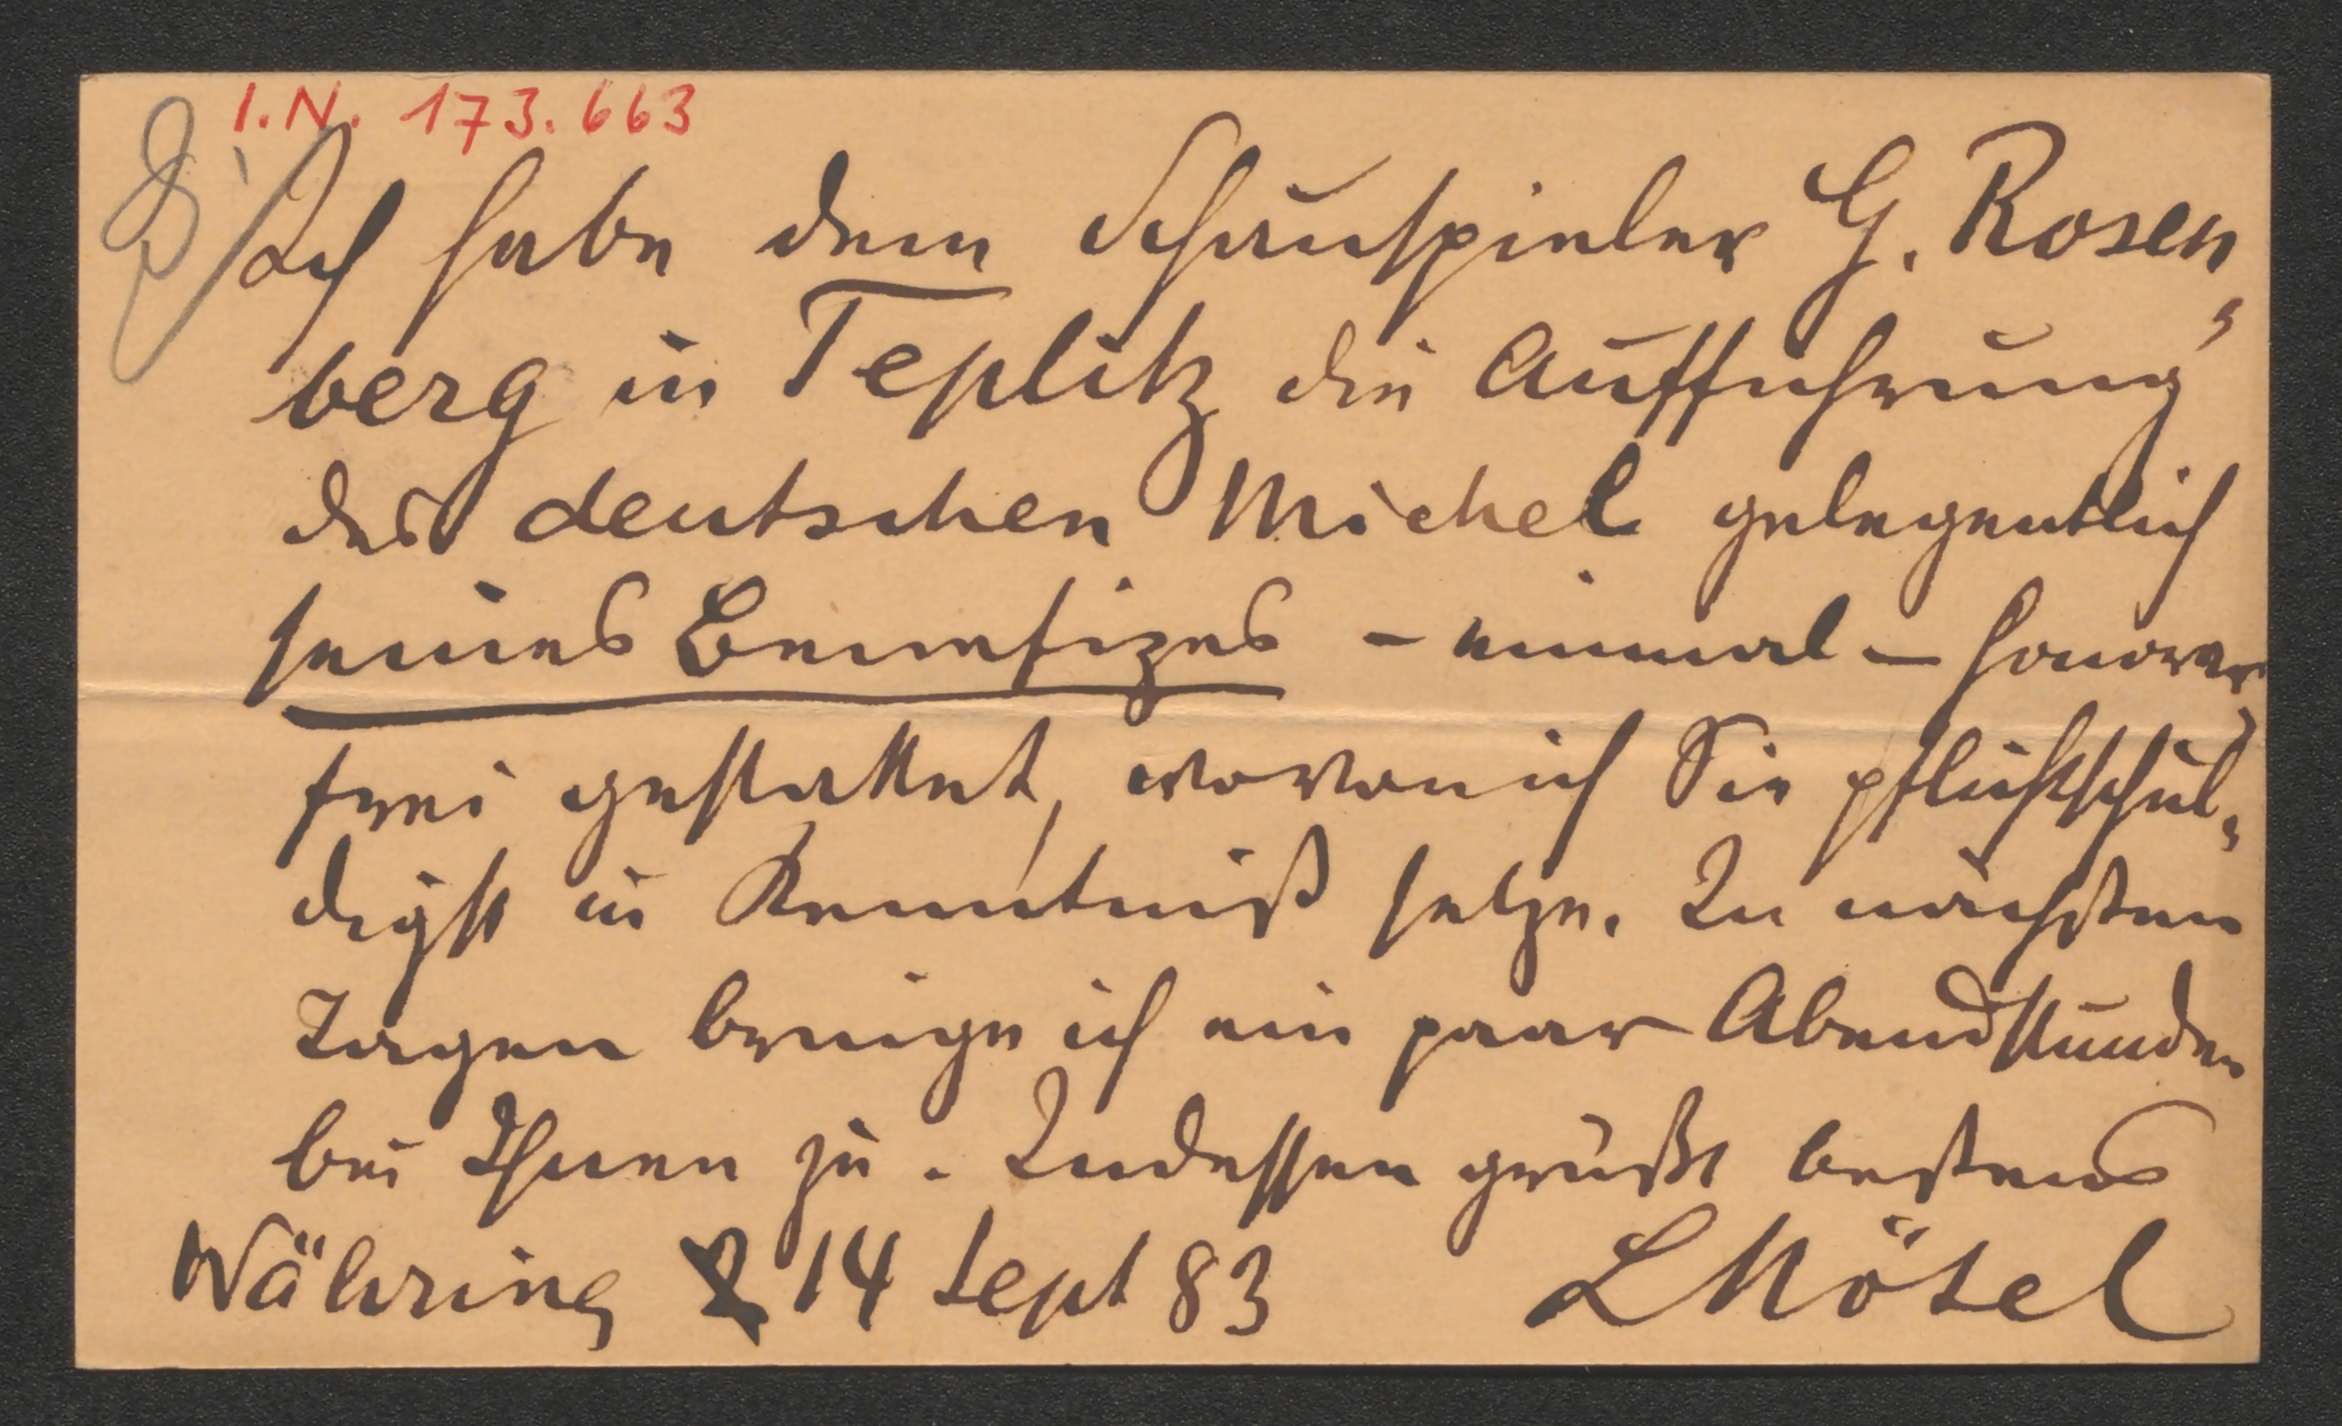 I.N. 173.663
Ich habe dem Schauspieler G. Rosen„
berg in Teplitz die Aufführung
des deutschen Michel gelegentlich
seines Benefizes – einmal – honorar„
frei gestattet, wovon ich Sie pflichtschul„
digst in Kenntniß setze. In nächsten
Tagen bringe ich ein paar Abendstunden
bei Ihnen zu. Indessen grüßt bestens
Währing 14 Sept 83 LNötel